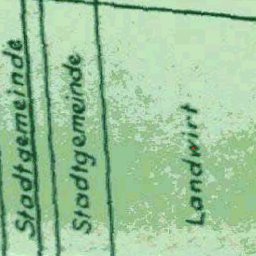 Stadtgemeinde
Stadtgemeinde
Landwirt